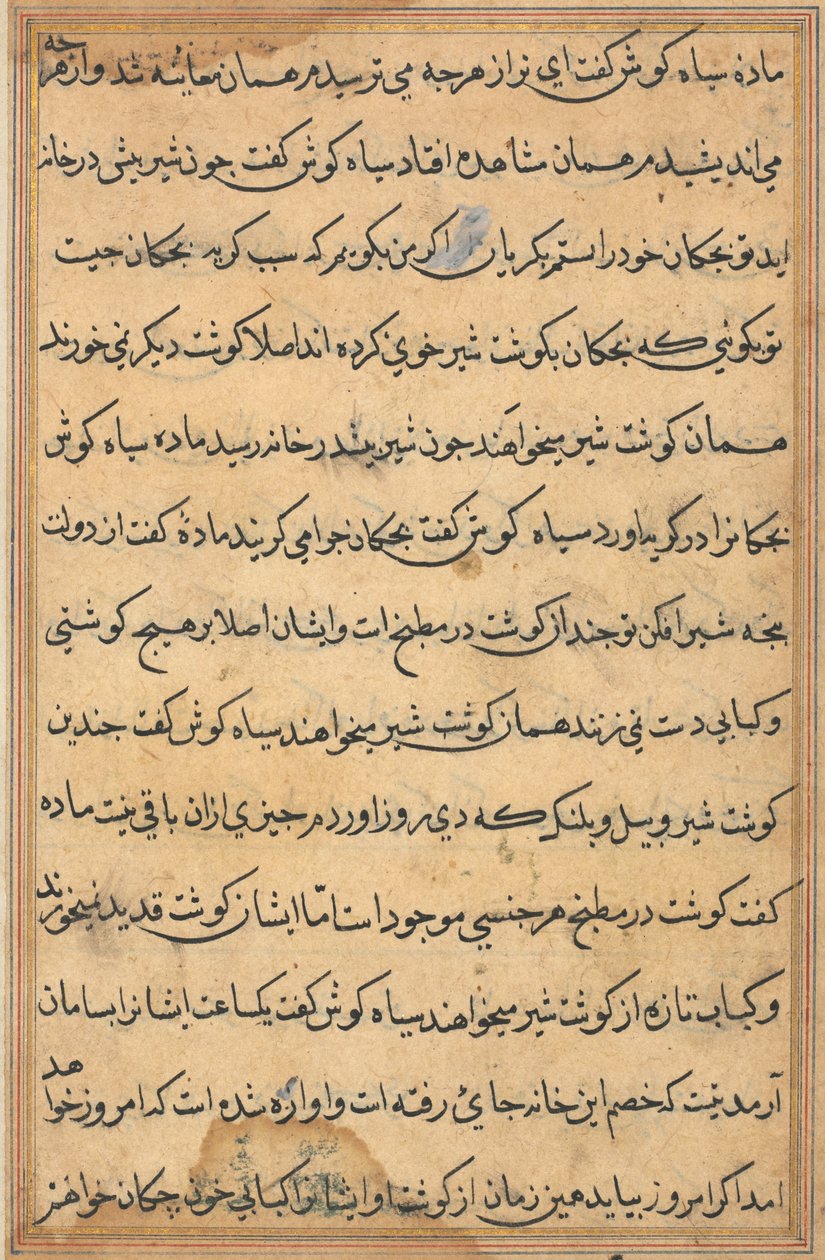 ماده سیاه کوش کفت ای نر از هرجه می ترسیدم همان معاینه شد و از هرجه
می اندیشیدم همان مشاهده افتاد سیاه کوش کفت جون شیر بیش در خانه
اید تو بجکان خود را ستم بکریان اکر من بکویم که سبب کریه بجکان جیست
تو بکوئی که بجکان بکوشت شیر خوی کرده اند اصلا کوشت دیکر نمی خورند
همان کوشت شیر میخواهند جون شیر بیش در خانه رسید ماده سیاه کوش
بجکانرا در کریه اورد سیاه کوش کفت بجکان جرا می کریند ماده کفت از دولت
بنجه شیر افکن تو جندان کوشت در مطبخ است و ایشان اصلا بر هیج کوشتی
و کبابی دست نمی زنند همان کوشت شیر میخواهند سیاه کوش کفت جندین
کوشت شیر و بیل و بلنک که دی روز اوردم جیزی ازان باقی نیست ماده
کفت کوشت در مطبخ هر جنسی موجود است امّا ایشان کوشت قدید نمیخورند
و کباب تازه از کوشت شیر میخواهند سیاه کوش کفت یکساعت ایشانرا بسامان
آر مدتیست که خصم این خانه جائ رفته است و اواره شده است که امروز خواهد
امد اکر امروز بیاید همین زمان از کوشت او ایشانرا کبابی خون چکان خواهم